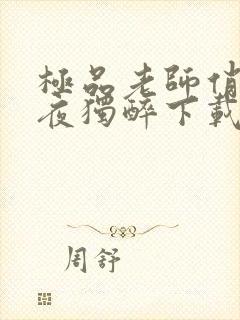 極品老師俏
夜獨醉下載
周舒